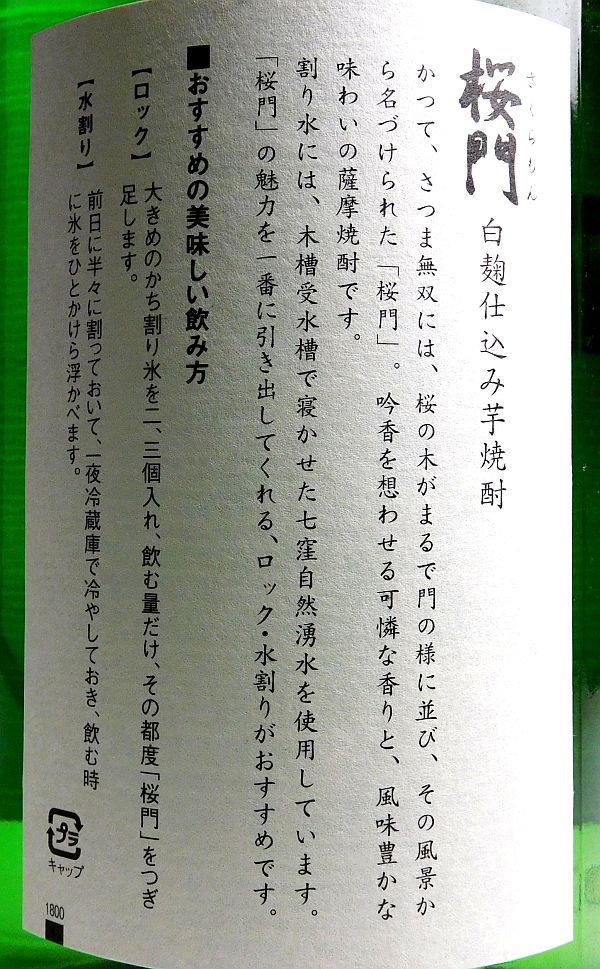 さくらもん
桜門 白麹仕込み芋焼酎
かつて、さつま無双には、桜の木がまるで門の様に並び、その風景か
ら名づけられた「桜門」。吟香を想わせる可憐な香りと、風味豊かな
味わいの薩摩焼酎です。
割り水には、木槽受水槽で寝かせた七窪自然湧水を使用しています。
「桜門」の魅力を一番に引き出してくれる、ロック・水割りがおすすめです。
■おすすめの美味しい飲み方
【ロック】 大きめのかち割り氷を二、三個入れ、飲む量だけ、その都度「桜門」をつぎ
足します。
【水割り】 前日に半々に割っておいて、一夜冷蔵庫で冷やしておき、飲む時
に氷をひとかけら浮かべます。
プラ
キャップ
1800